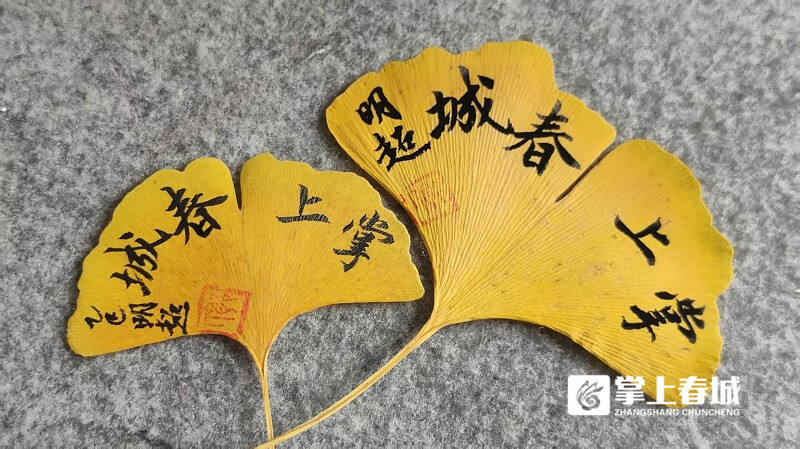 掌上春城
乙巳明超
掌上春城
明超
掌上春城
ZHANGSHANG CHUNCHENG